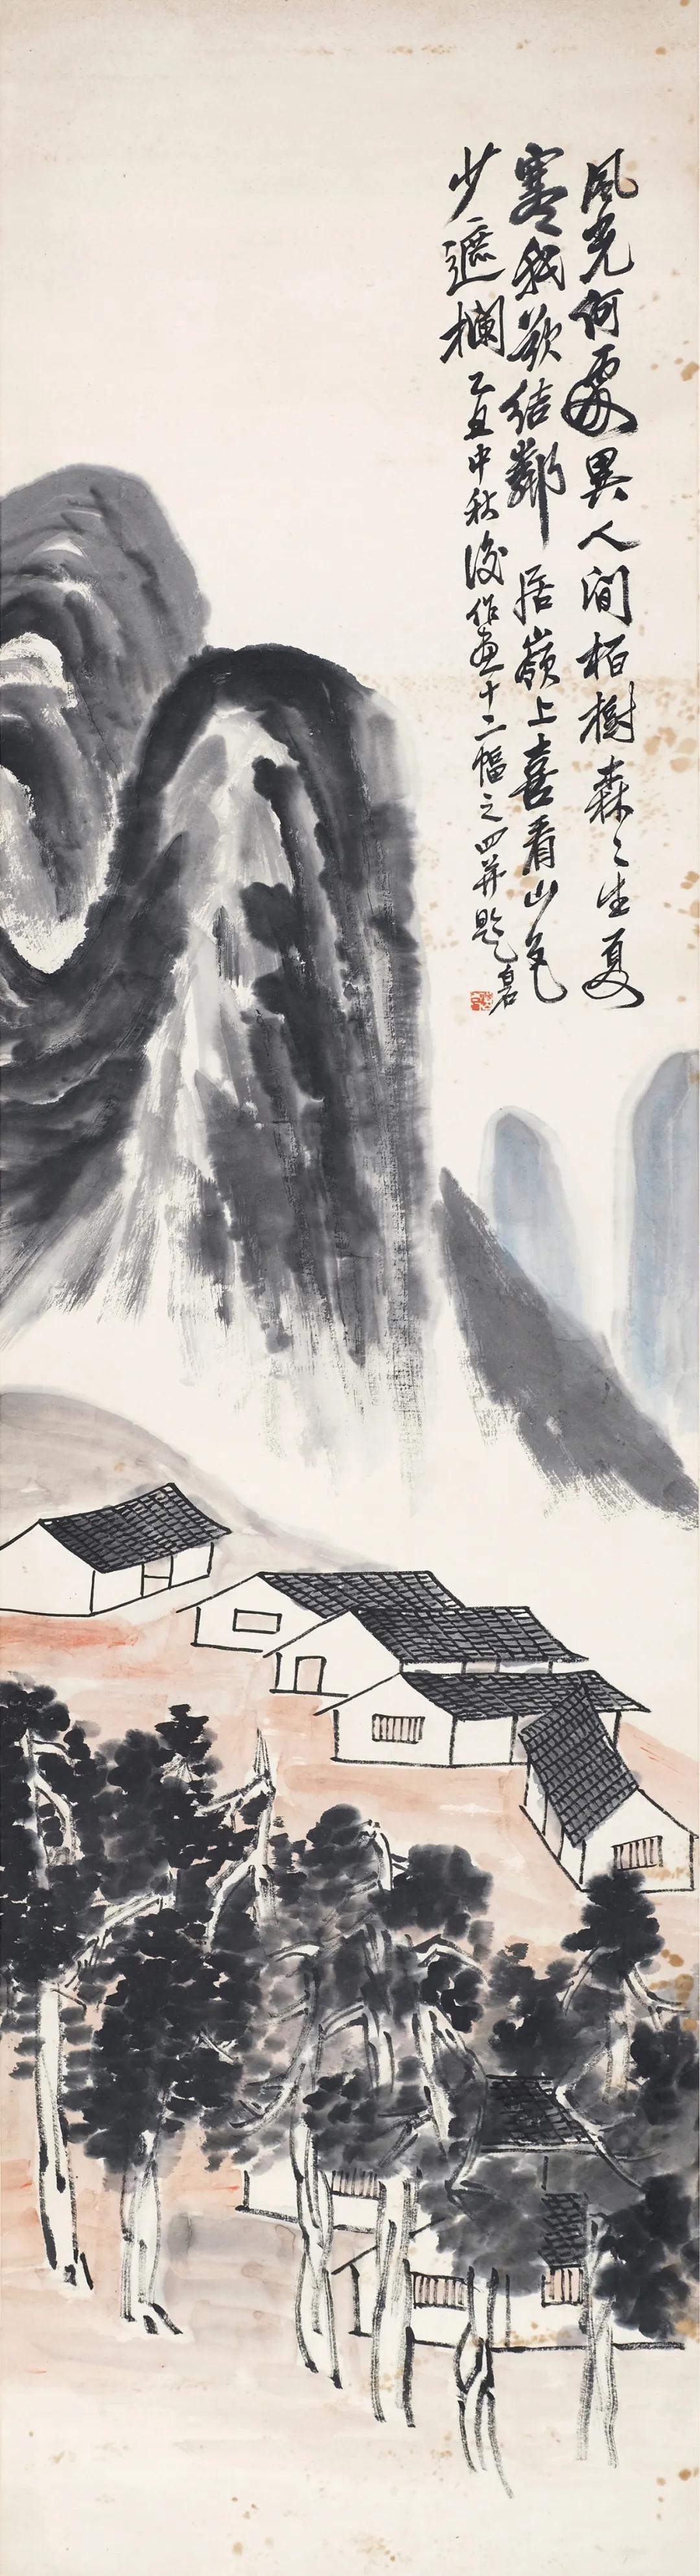 風光何處異人間栢樹森々生夏
寒我欲結鄰居嶺上喜看山色
少遮欄乙丑中秋後作畫十二幅之四并題白石